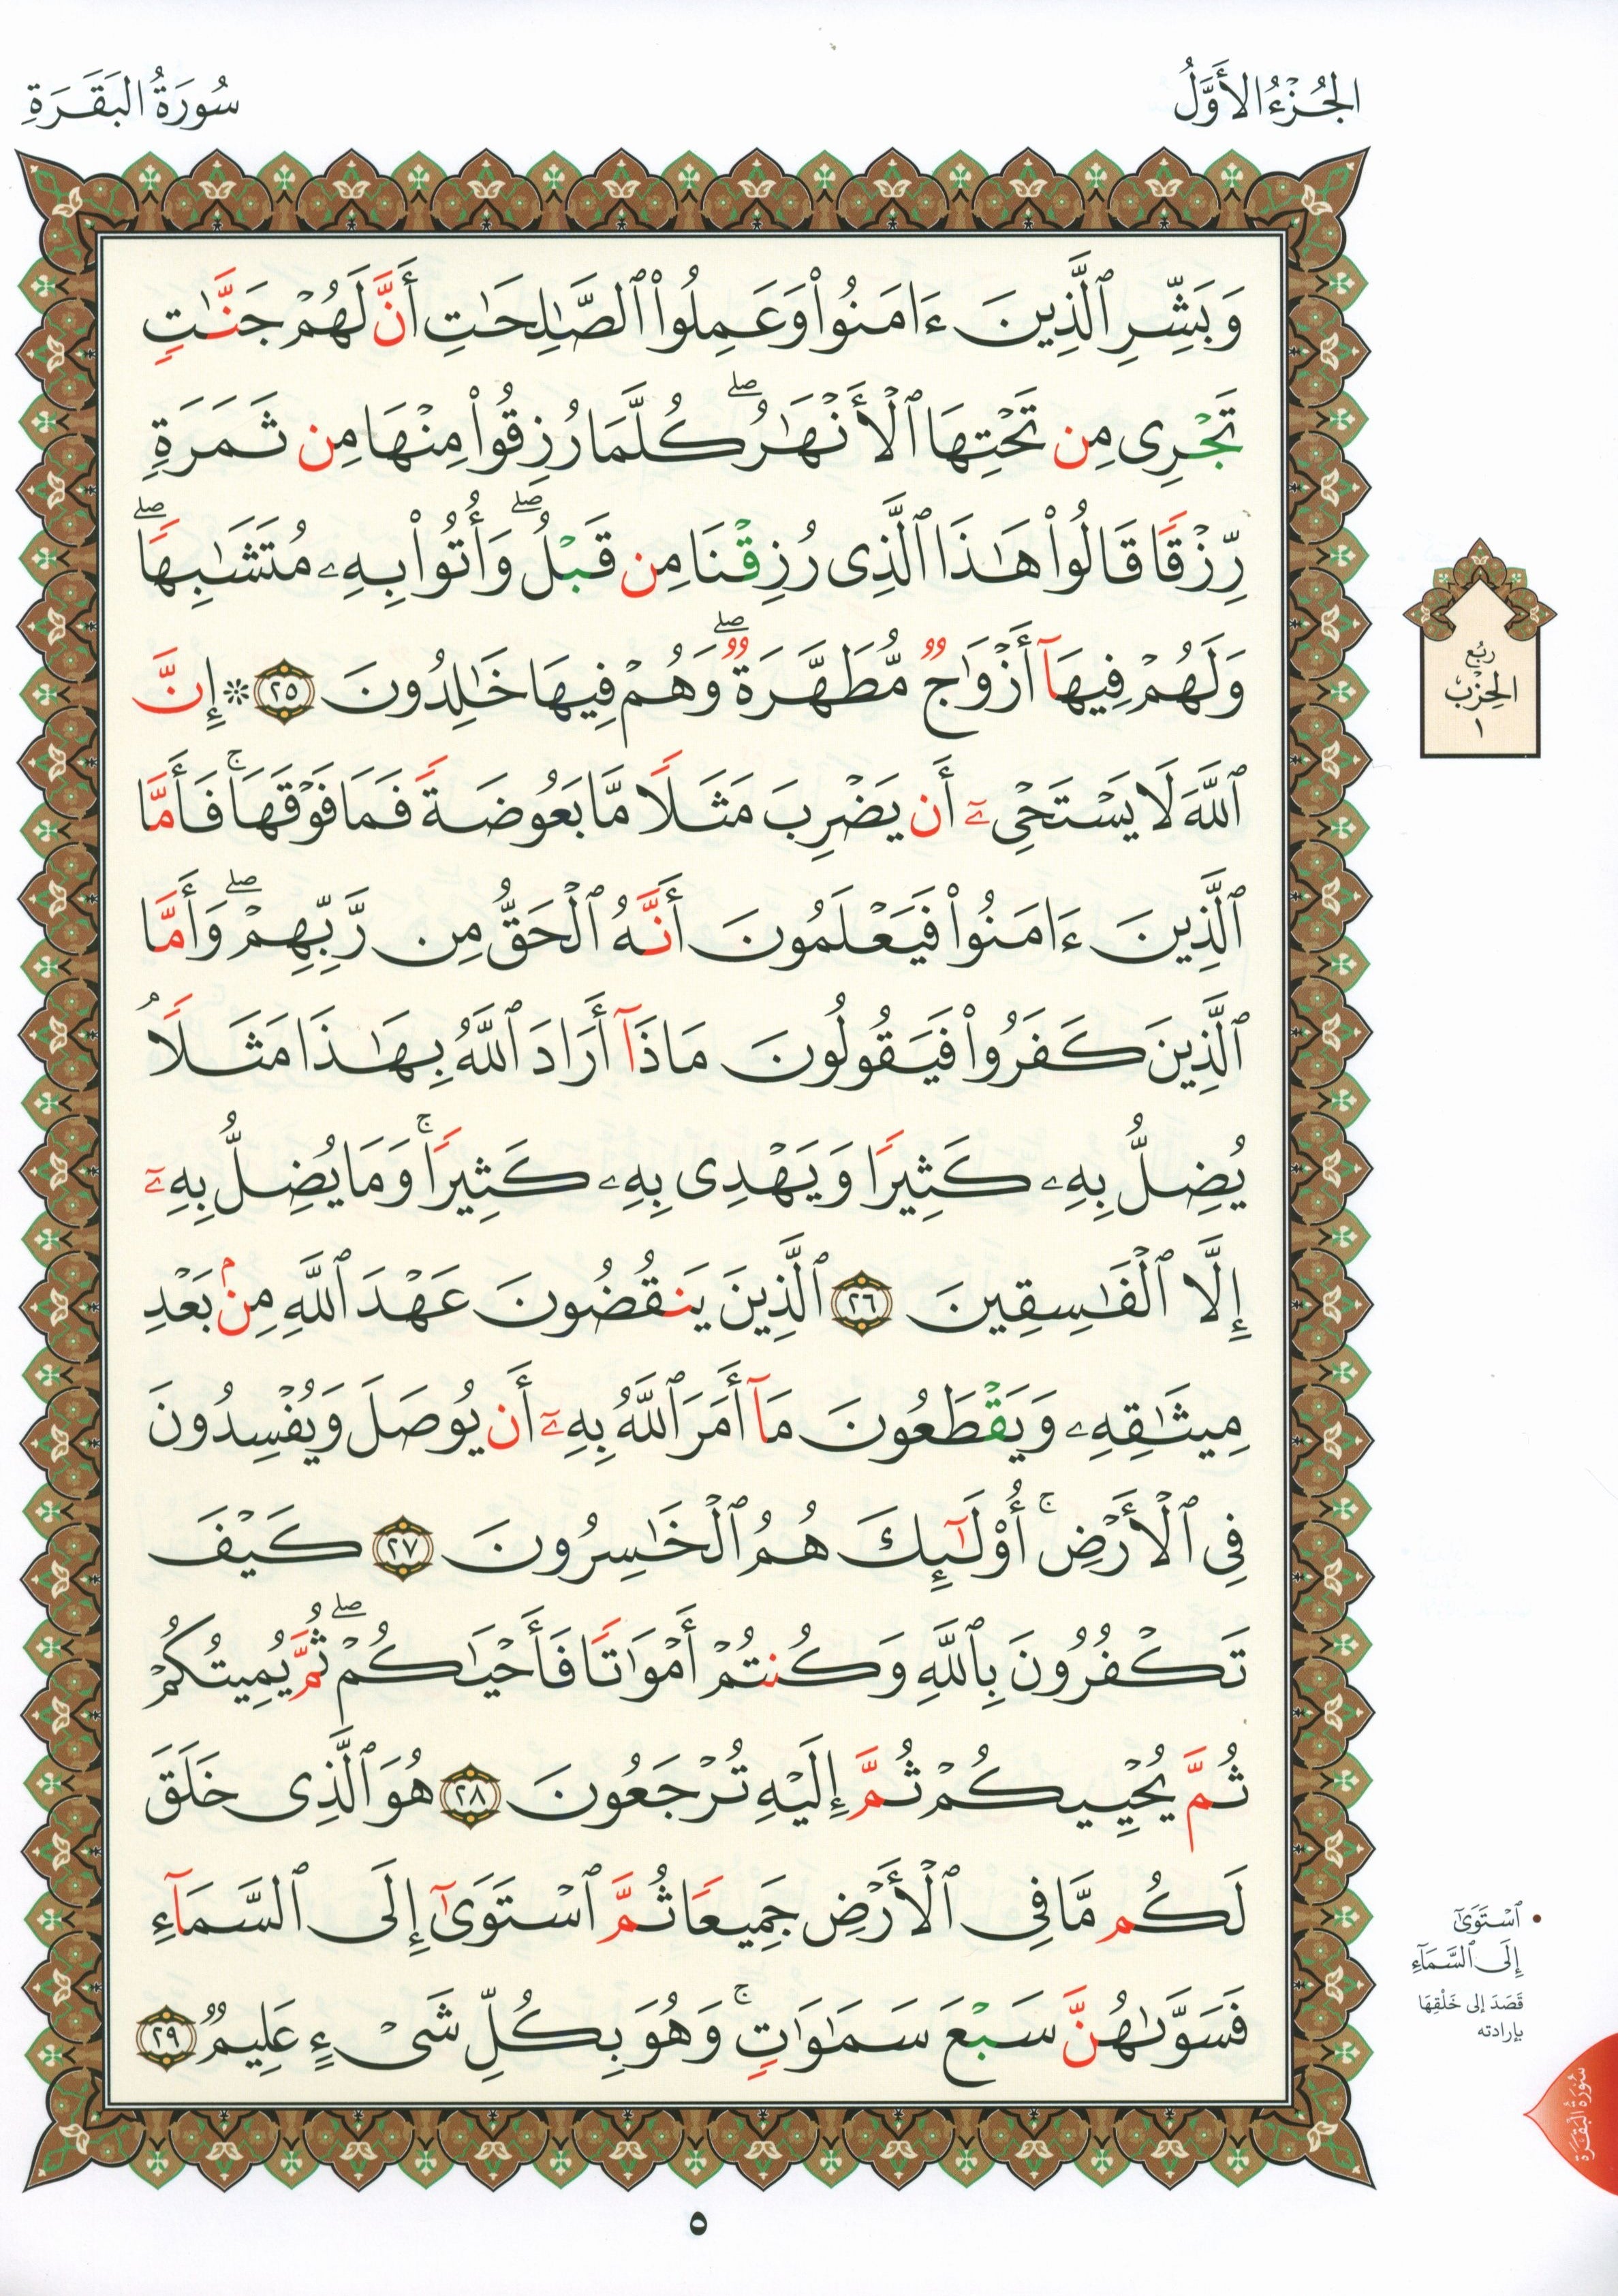 الجُزْءُ الأَوَّلُ
سُورَةُ البَقَرَةِ
وَبَشِّرِ ٱلَّذِينَ ءَامَنُوا۟ وَعَمِلُوا۟ ٱلصَّـٰلِحَـٰتِ أَنَّ لَهُمْ جَنَّـٰتٍ
تَجْرِى مِن تَحْتِهَا ٱلْأَنْهَـٰرُ ۖ كُلَّمَا رُزِقُوا۟ مِنْهَا مِن ثَمَرَةٍ
رِّزْقًا قَالُوا۟ هَـٰذَا ٱلَّذِى رُزِقْنَا مِن قَبْلُ ۖ وَأُتُوا۟ بِهِۦ مُتَشَـٰبِهًا ۖ
وَلَهُمْ فِيهَآ أَزْوَٰجٌ مُّطَهَّرَةٌ ۖ وَهُمْ فِيهَا خَـٰلِدُونَ ٢٥ ۞ إِنَّ
ٱللَّهَ لَا يَسْتَحْىِۦٓ أَن يَضْرِبَ مَثَلًا مَّا بَعُوضَةً فَمَا فَوْقَهَا ۚ فَأَمَّا
ٱلَّذِينَ ءَامَنُوا۟ فَيَعْلَمُونَ أَنَّهُ ٱلْحَقُّ مِن رَّبِّهِمْ ۖ وَأَمَّا
ٱلَّذِينَ كَفَرُوا۟ فَيَقُولُونَ مَاذَآ أَرَادَ ٱللَّهُ بِهَـٰذَا مَثَلًا ۘ
يُضِلُّ بِهِۦ كَثِيرًا وَيَهْدِى بِهِۦ كَثِيرًا ۚ وَمَا يُضِلُّ بِهِۦٓ
إِلَّا ٱلْفَـٰسِقِينَ ٢٦ ٱلَّذِينَ يَنقُضُونَ عَهْدَ ٱللَّهِ مِنۢ بَعْدِ
مِيثَـٰقِهِۦ وَيَقْطَعُونَ مَآ أَمَرَ ٱللَّهُ بِهِۦٓ أَن يُوصَلَ وَيُفْسِدُونَ
فِى ٱلْأَرْضِ ۚ أُو۟لَـٰٓئِكَ هُمُ ٱلْخَـٰسِرُونَ ٢٧ كَيْفَ
تَكْفُرُونَ بِٱللَّهِ وَكُنتُمْ أَمْوَٰتًا فَأَحْيَـٰكُمْ ۖ ثُمَّ يُمِيتُكُمْ
ثُمَّ يُحْيِيكُمْ ثُمَّ إِلَيْهِ تُرْجَعُونَ ٢٨ هُوَ ٱلَّذِى خَلَقَ
لَكُم مَّا فِى ٱلْأَرْضِ جَمِيعًا ثُمَّ ٱسْتَوَىٰٓ إِلَى ٱلسَّمَآءِ
فَسَوَّىٰهُنَّ سَبْعَ سَمَـٰوَٰتٍ ۚ وَهُوَ بِكُلِّ شَىْءٍ عَلِيمٌ ٢٩
رُبْع
الحِزْب
١
• ٱسْتَوَىٰٓ
إِلَى ٱلسَّمَآءِ
قَصَدَ إلى خَلْقِهَا
بإرادته
سُورَةُ البَقَرَة
٥